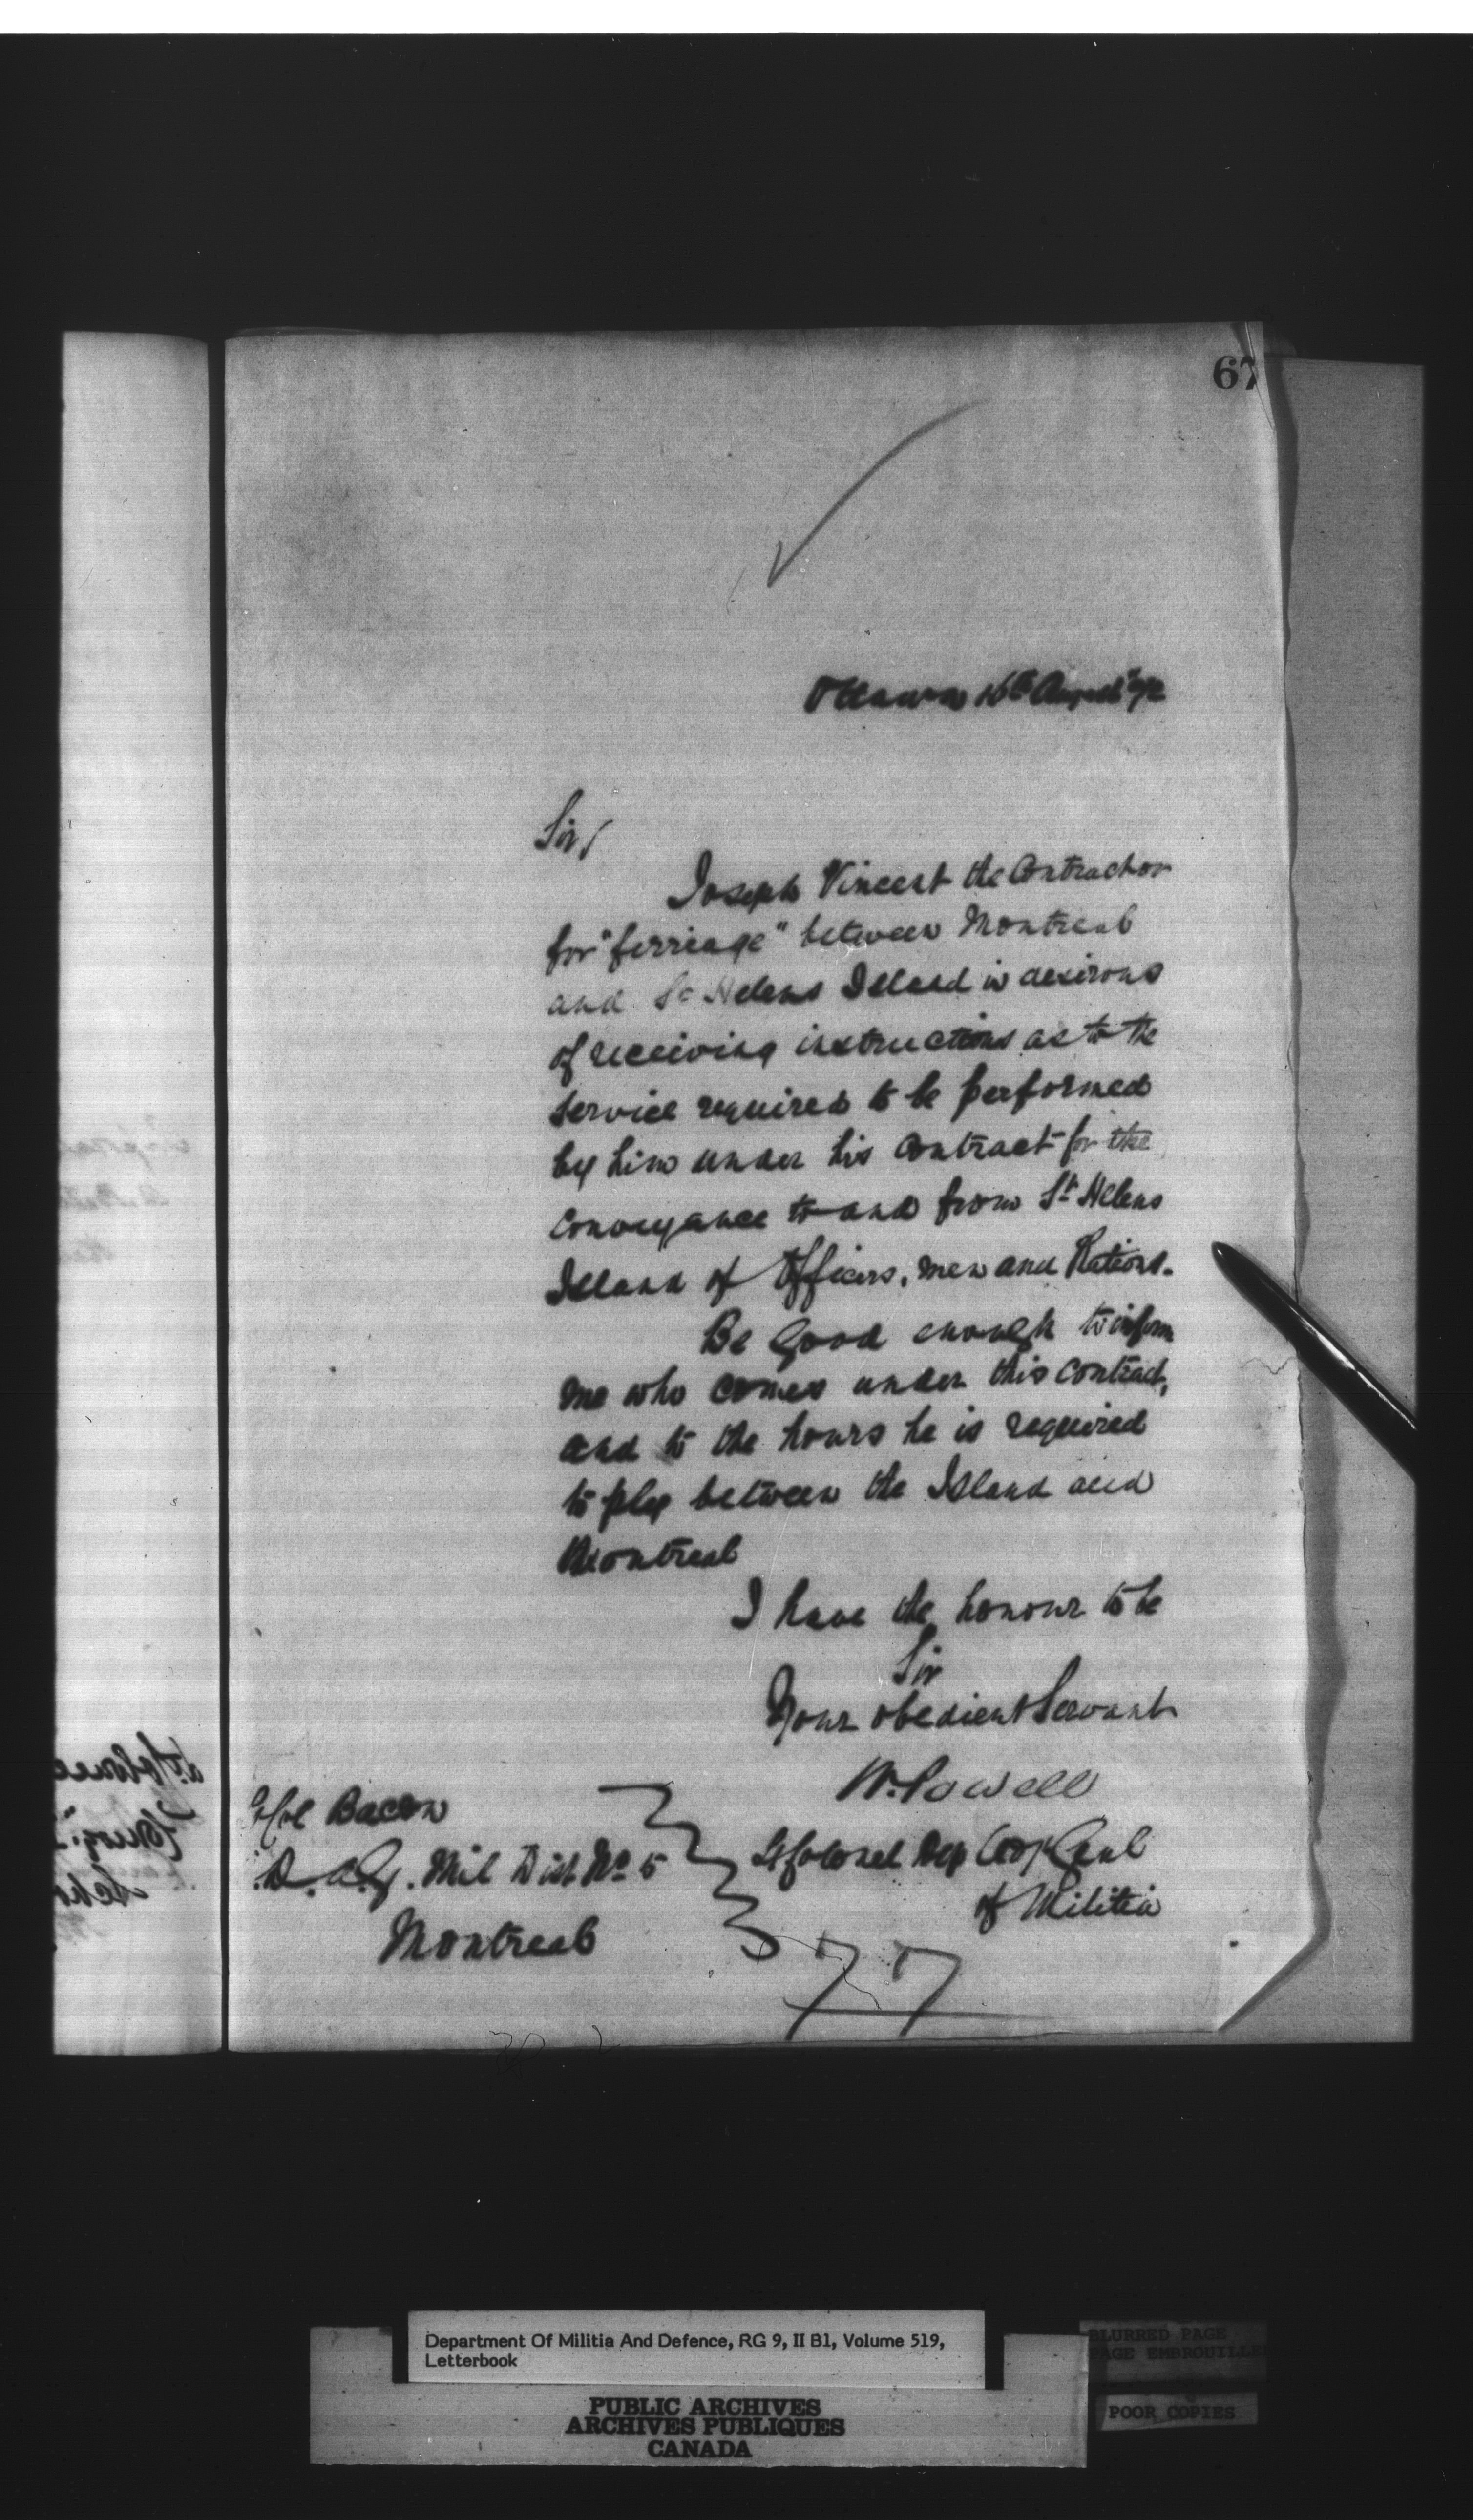 67
Ottawa 16th August '72
Sir,
Joseph Vincent the Contractor
for "ferriage" between Montreal
and St Helens Island is desirous
of receiving instructions as to the
service required to be performed
by him under his Contract for the
conveyance to and from St Helens
Island of Officers, men and Rations.
Be Good enough to inform
me who comes under this contract,
and to the hours he is required
to ply between the Island and
Montreal
I have the honour to be
Sir
Your obedient Servant
W. Powell
Lt Colonel Dep Adj Genl
of Militia
Lt Col Bacon
D.A.G. Mil Dist No 5
Montreal
77
Department Of Militia And Defence, RG 9, II B1, Volume 519,
Letterbook
PUBLIC ARCHIVES
ARCHIVES PUBLIQUES
CANADA
BLURRED PAGE
PAGE EMBROUILLE
POOR COPIES